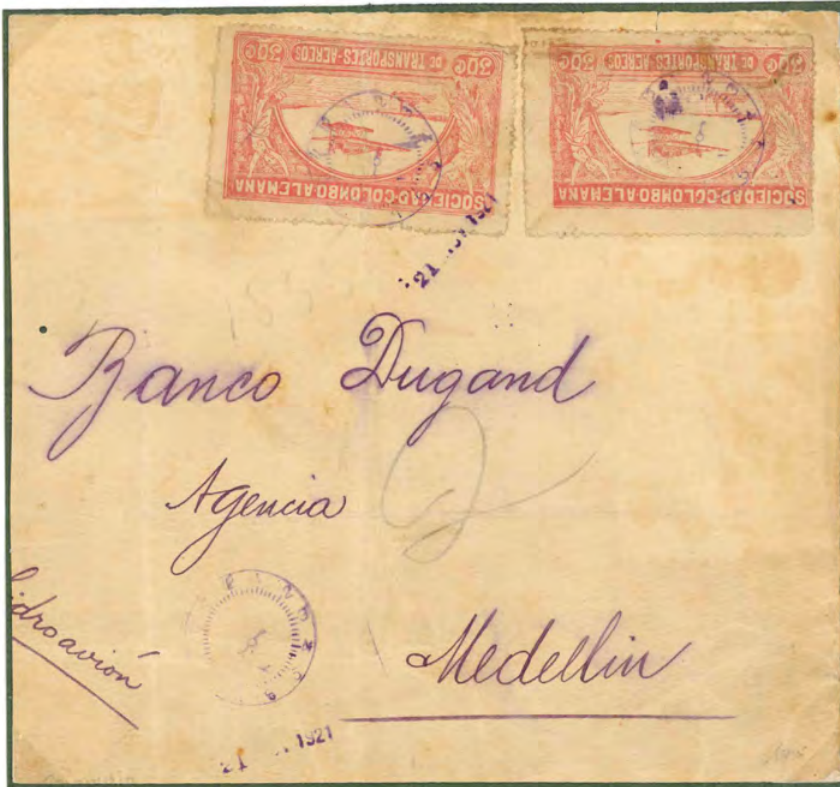 30¢ DE TRANSPORTES-AEREOS 30¢
SOCIEDAD-COLOMBO-ALEMANA
30¢ DE TRANSPORTES-AEREOS 30¢
SOCIEDAD-COLOMBO-ALEMANA
21 1921
Banco Dugand
Agencia
Hidroavión
Medellin
21 1921